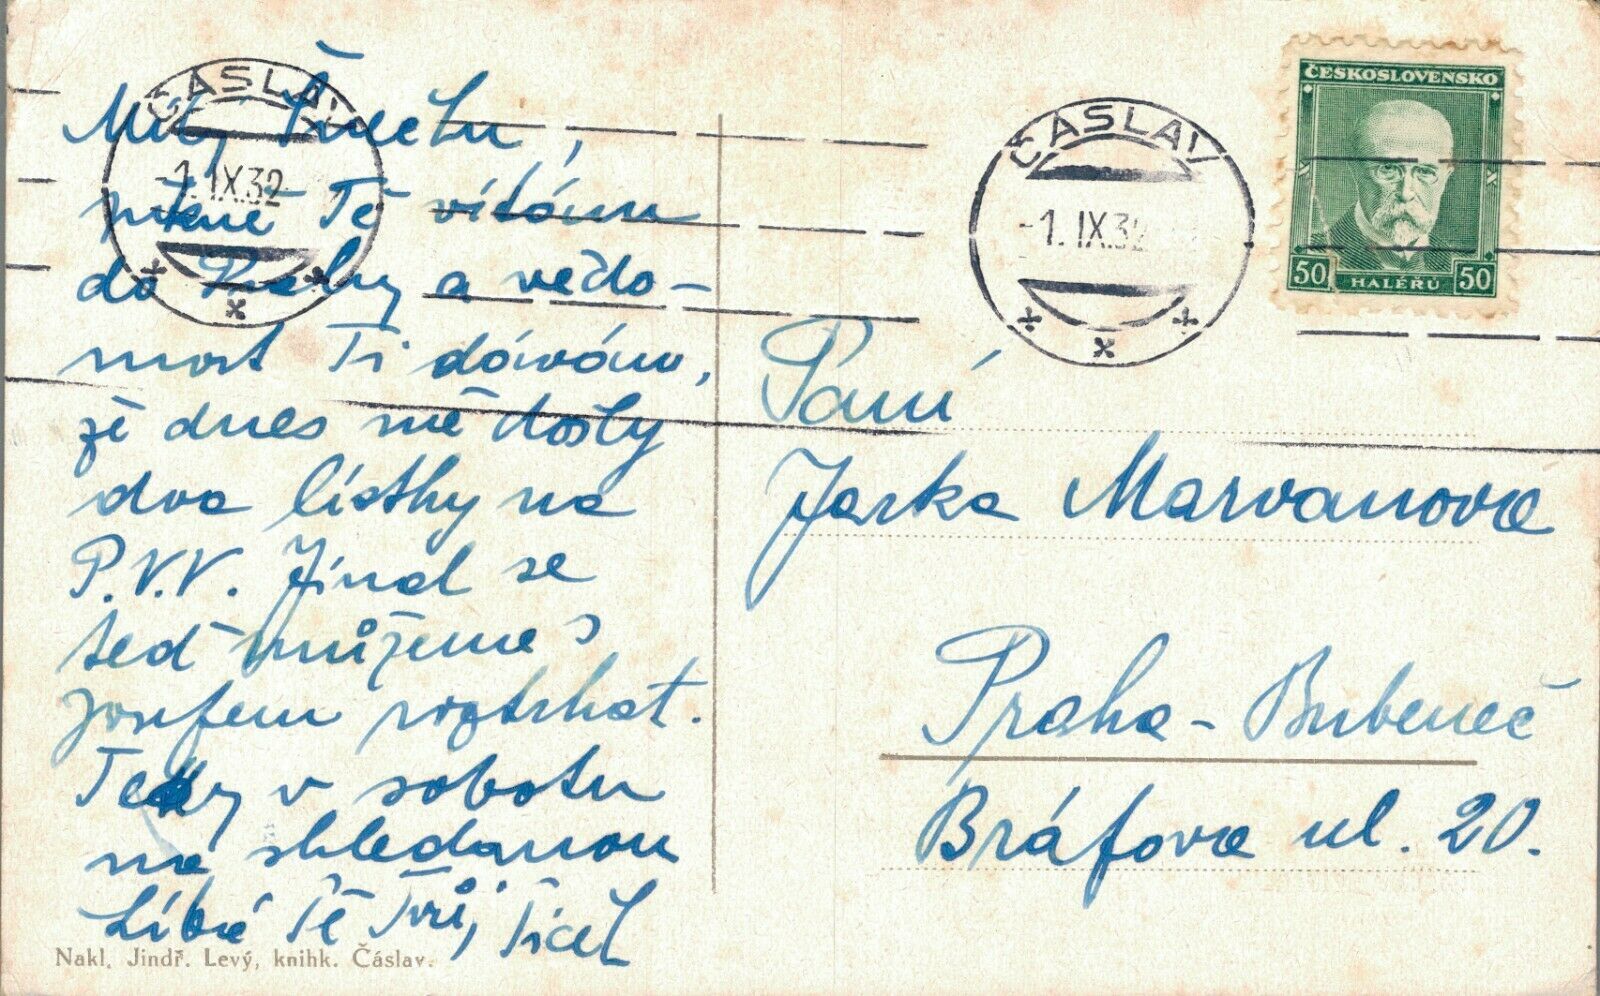 ČÁSLAV
-1.IX.32
Milý
pěkně Tě vítám
do Prahy a vědo-
most Ti dávám,
že dnes mě došly
dva lístky na
P.V.V. Jinak se
teď můžeme s
Josefem roztrhat.
Tedy v sobotu
na shledanou
Líbá Tě Tvůj
Nakl. Jindř. Levý, knihk. Čáslav.
ČÁSLAV
-1. IX.32
ČESKOSLOVENSKO
50 HALÉŘŮ 50
Paní
Jarka Marvanova
Praha-Bubeneč
Bráfova ul. 20.